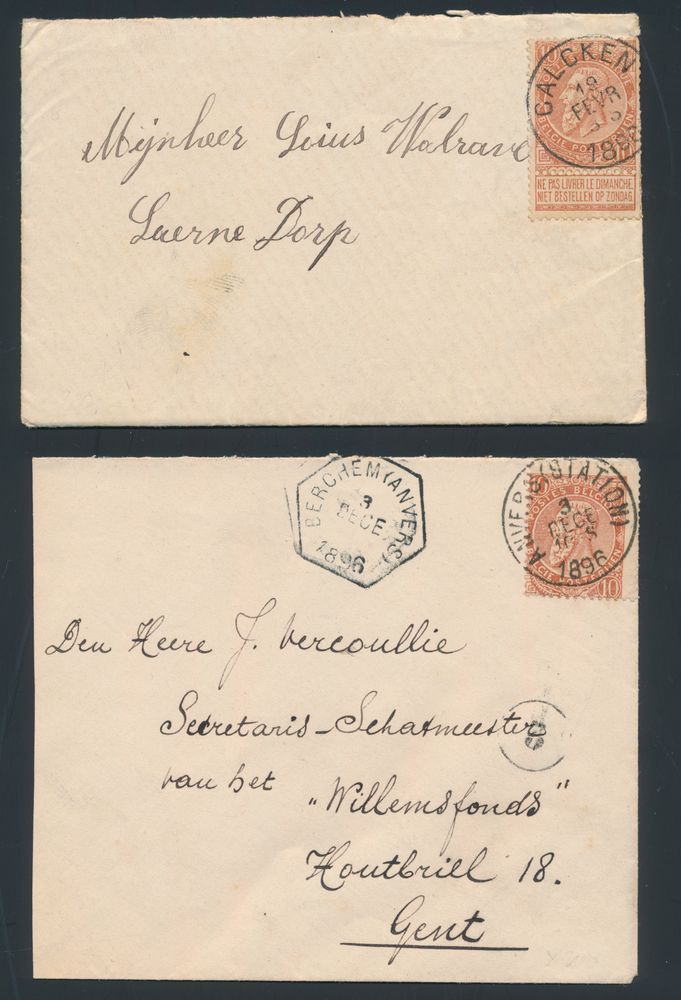 Mijnheer Luius Walrave
Laerne Dorp
CALCKEN
18
FEVR
1896
BELGIE PO
NE PAS LIVRER LE DIMANCHE
NIET BESTELLEN OP ZONDAG
BERCHEM (ANVERS)
3
DECE
1896
ANVERS (STATION)
3
DECE
1896
POSTES BELGI
10
Den Heere J. Vercoullie
Secretaris-Schatmeester
van het "Willemsfonds"
Houtbriel 18.
Gent